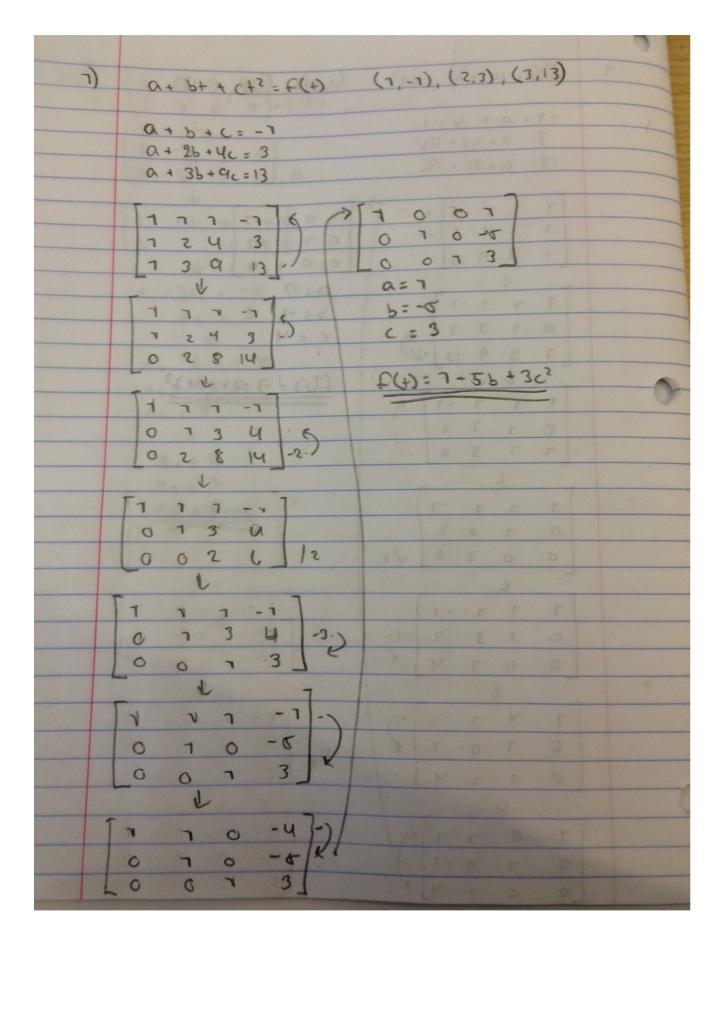 1)
a + bt + ct² = f(t)
(1,-1), (2,3), (3,13)
a + b + c = -1
a + 2b + 4c = 3
a + 3b + 9c = 13
1 1 1 -1
1 2 4 3
1 3 9 13 -
↓
1 1 1 -1
1 2 4 3 -
0 2 8 14
↓
1 1 1 -1
0 1 3 4
0 2 8 14 -2·
↓
1 1 1 -1
0 1 3 4
0 0 2 6 /2
↓
1 1 1 -1
0 1 3 4 -3·
0 0 1 3
↓
1 1 1 -1 -
0 1 0 -5
0 0 1 3
↓
1 1 0 -4 -
0 1 0 -5
0 0 1 3
1 0 0 1
0 1 0 -5
0 0 1 3
a = 1
b = -5
c = 3
f(t) = 1 - 5b + 3c²